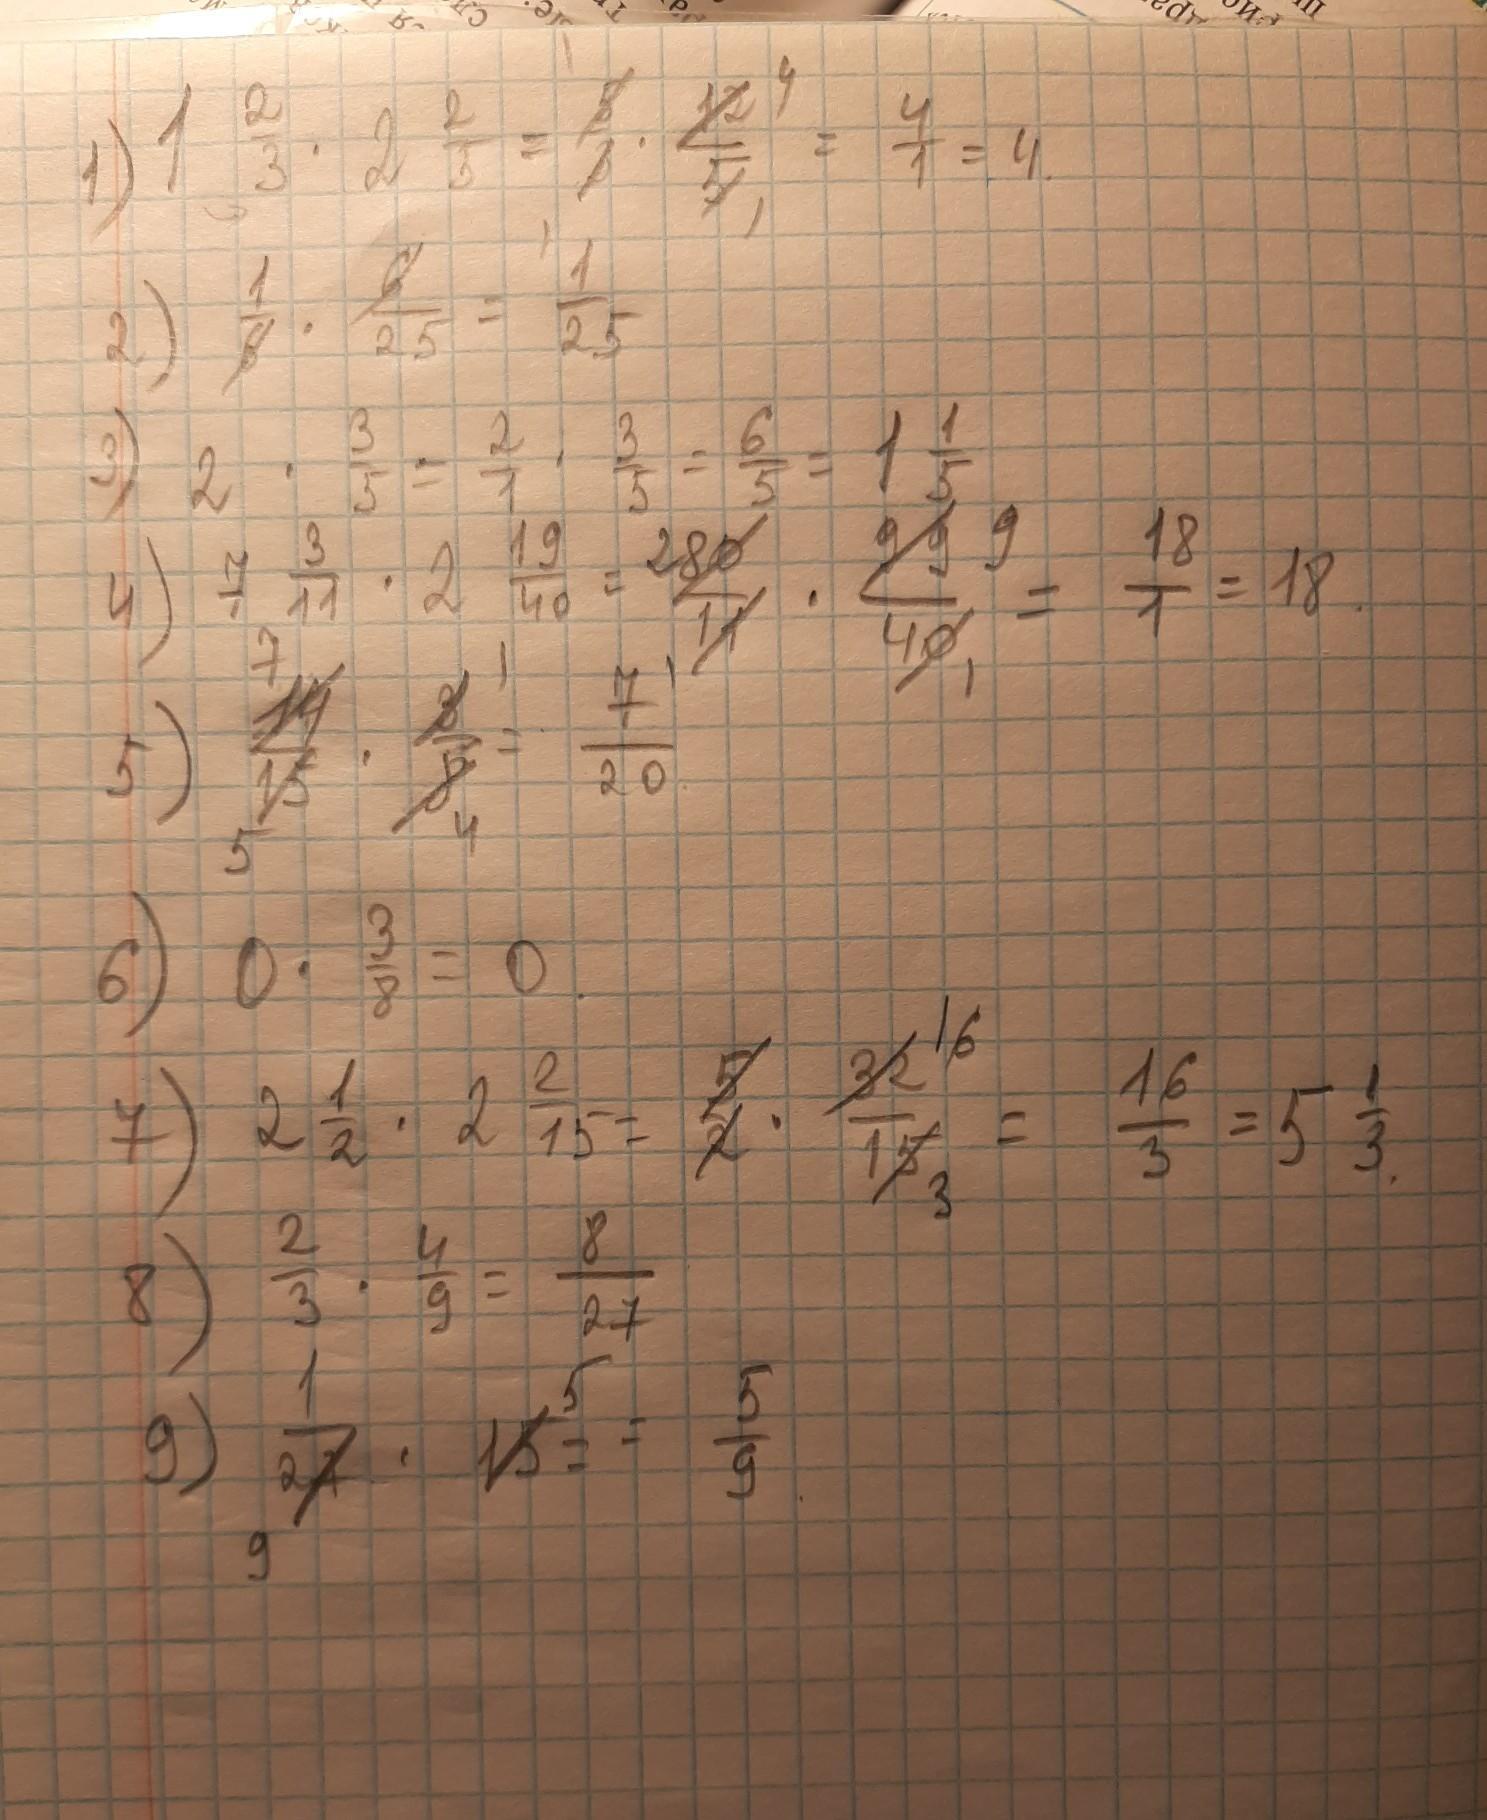 1) 1 2/3 · 2 2/5 = 5/3 · 12/5 4 1 = 4/1 = 4.
2) 1/6 · 6/25 = 1/25
3) 2 · 3/5 = 2/1 · 3/5 = 6/5 = 1 1/5
4) 7 3/11 · 2 19/40 = 280/11 · 99/40 9 1 = 18/1 = 18.
5) 7 14/15 5 · 3/8 1 4 = 7/20
6) 0 · 3/8 = 0.
7) 2 1/2 · 2 2/15 = 5/2 · 32/15 16 3 = 16/3 = 5 1/3.
8) 2/3 · 4/9 = 8/27
9) 1/27 9 · 15 5 = = 5/9.